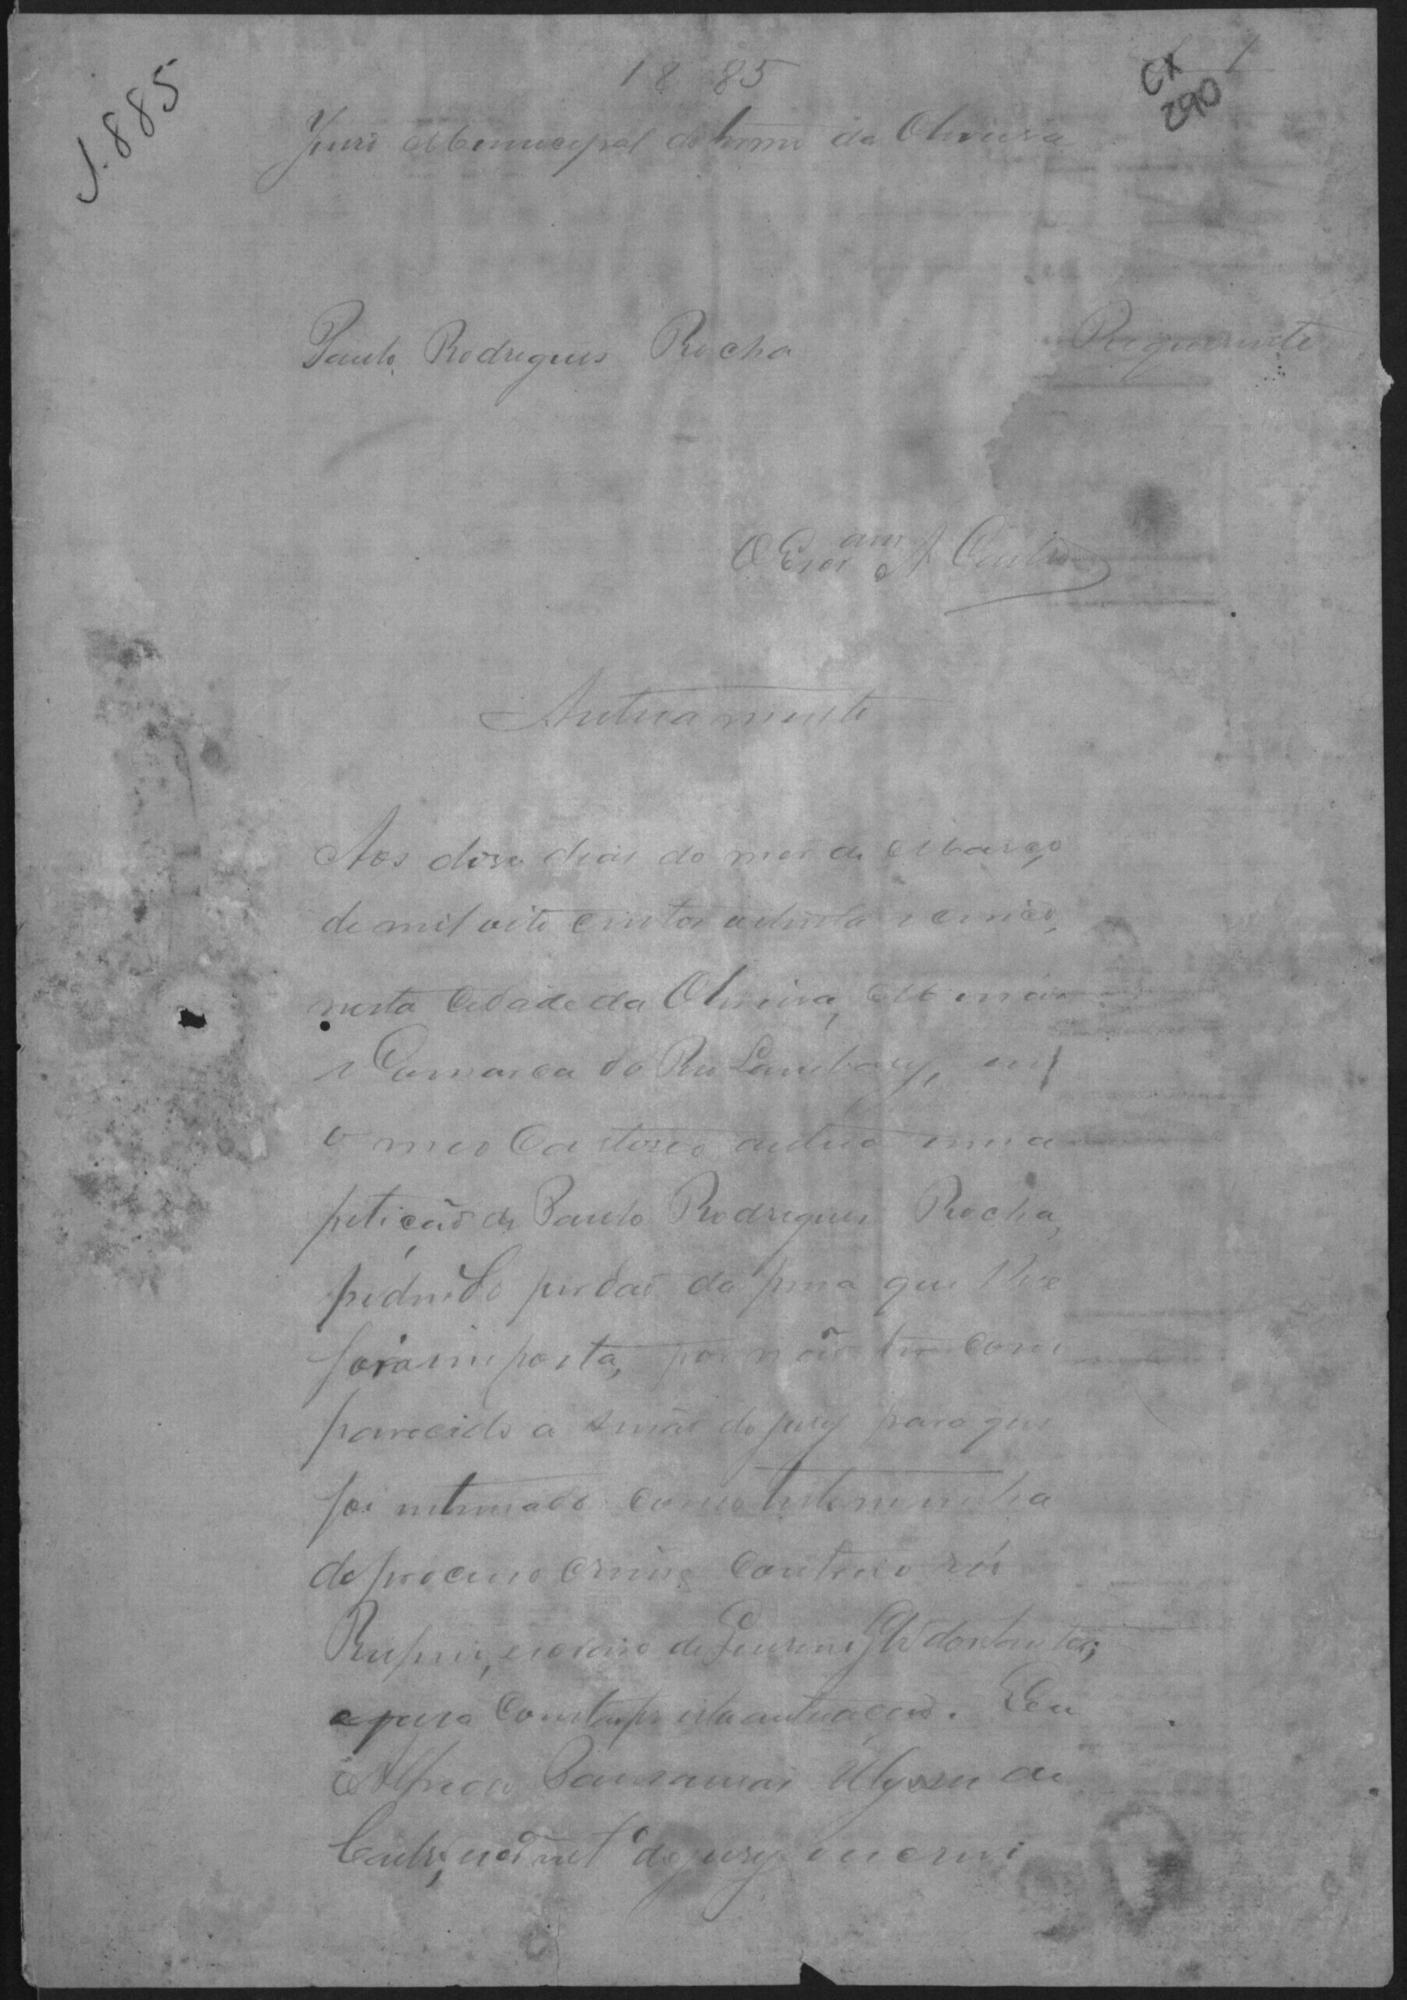 1885
CX 1
290
1.885
Juizo Municipal do termo da Oliveira
Paulo Rodrigues Rocha Requerente
O Escr.am A Castro
Autuamento
Aos dose dias do mes de Março
de mil oito centos oitenta e cinco,
nesta Cidade da Oliveira, Minas
e Comarca do Rio Lambary, em
o meo Cartorio autuo uma
petição de Paulo Rodrigues Rocha,
pedindo perdão da pena que lhe
fora imposta, por não ter com
parecido a secção do jury para que
foi intimado como testemunha
do processo crime contra o réo
Rufino, escravo de
e para constar fis esta autuação. Eu
Alfredo Ulysses de
Castro, do jury escrevi